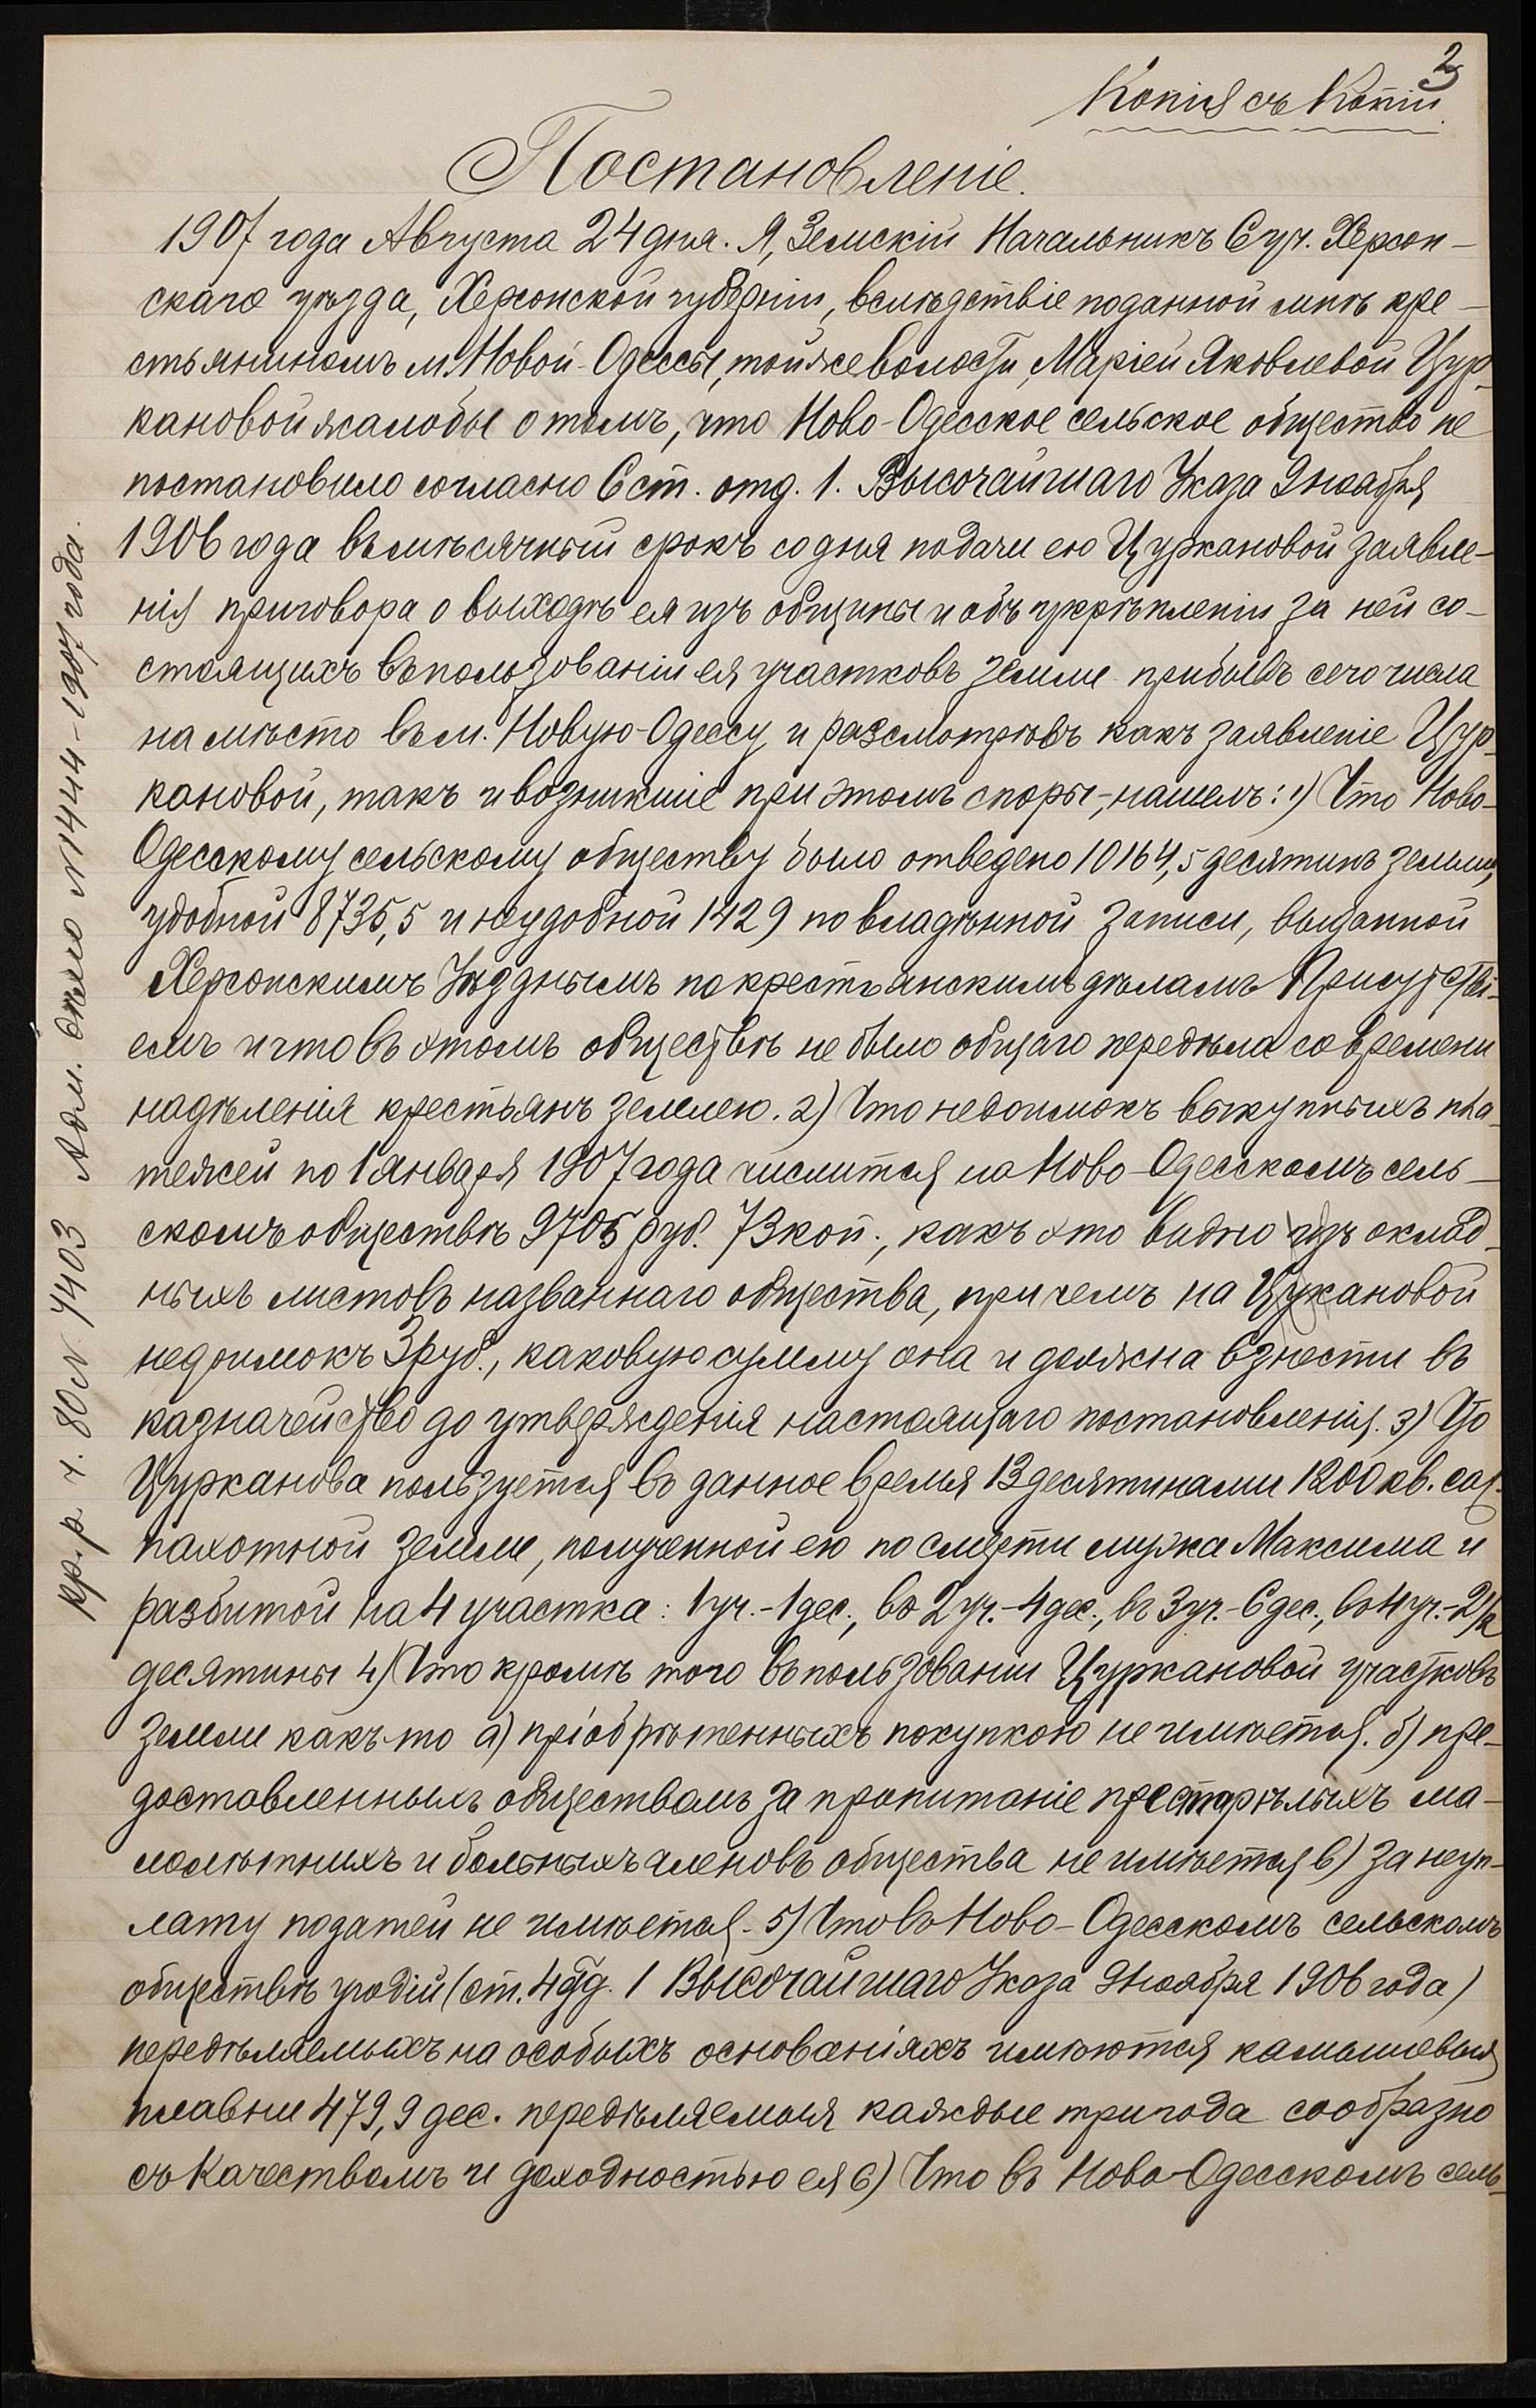 2
Копія съ Копіи.
Постановленіе.
1907 года Августа 24 дня. Я, Земскій Начальникъ 6 уч. Херсон-
скаго уѣзда, Херсонской губерніи, вслѣдствіе поданной мнѣ кре-
стьянином м. Новой-Одессы, той же волости, Маріей Яковлевой Цур-
кановой жалобы о томъ, что Ново-Одесское сельское общество не
постановило согласно 6 ст. отд. 1. Высочайшаго Указа 9 ноября
1906 года въ мѣсячный срокъ со дня подачи ею Цуркановой заявле-
нія приговора о выходѣ ея изъ общины и объ укрѣпленіи за ней со-
стоящихъ въ пользованіи ея участковъ земли прибывъ сего числа
на мѣсто въ м. Новую-Одессу и разсмотрѣвъ какъ заявленіе Цур-
кановой, такъ и возникшіе при этомъ споры,-нашелъ: 1) Что Ново-
Одесскому сельскому обществу было отведено 10164,5 десятинъ земли,
удобной 8735,5 и неудобной 1429 по владѣнной записи, выданной
Херсонскимъ Уѣзднымъ по крестьянскимъ дѣламъ Присутстві-
емъ и что въ этомъ обществѣ не было общаго передѣла со времени
надѣленія крестьянъ землею. 2) Что недоимокъ выкупныхъ пла-
тежей по 1 января 1907 года числится на Ново-Одесскомъ сель-
скомъ обществѣ 9705 руб. 73 коп., какъ это видно изъ оклад-
ныхъ листовъ названнаго общества, при чемъ на Цукановой
недоимокъ 3 руб., каковую сумму она и должна взнести въ
казначейство до утвержденія настоящаго постановленія. 3) Что
Цурканова пользуется въ данное время 13 десятинами 1200 кв. саж.
пахотной земли, полученной ею по смерти мужа Максима и
разбитой на 4 участка: 1 уч.-1 дес., во 2 уч.-4 дес., въ 3 уч.-6 дес., въ 4 уч.-2 1/2
десятины 4) Что кромѣ того въ пользовании Цуркановой участковъ
земли какъ-то а) пріобрѣтенныхъ покупкою не имѣется. б) пре-
доставленныхъ обществомъ за пропитаніе престарѣлыхъ ма-
лолѣтнихъ и больныхъ членовъ общества не имѣется в) за неуп-
лату податей не имѣется. 5) Что въ Ново-Одесскомъ сельскомъ
обществѣ угодій (ст. 4 отд. 1 Высочайшаго Указа 9 ноября 1906 года)
передѣляемыхъ на особыхъ основаніяхъ имѣются камышевыя
плавни 479,9 дес. передѣляемыя каждые три года сообразно
съ качествомъ и доходностью ея 6) Что въ Ново-Одесскомъ сель-
кр. р. ч. 80 № 7403 Адм. дѣло № 1444-1907 года.